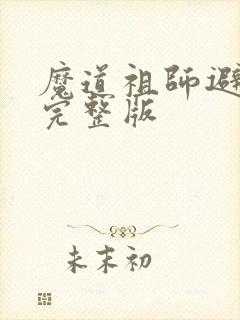 魔道祖师避
完整版
未末初